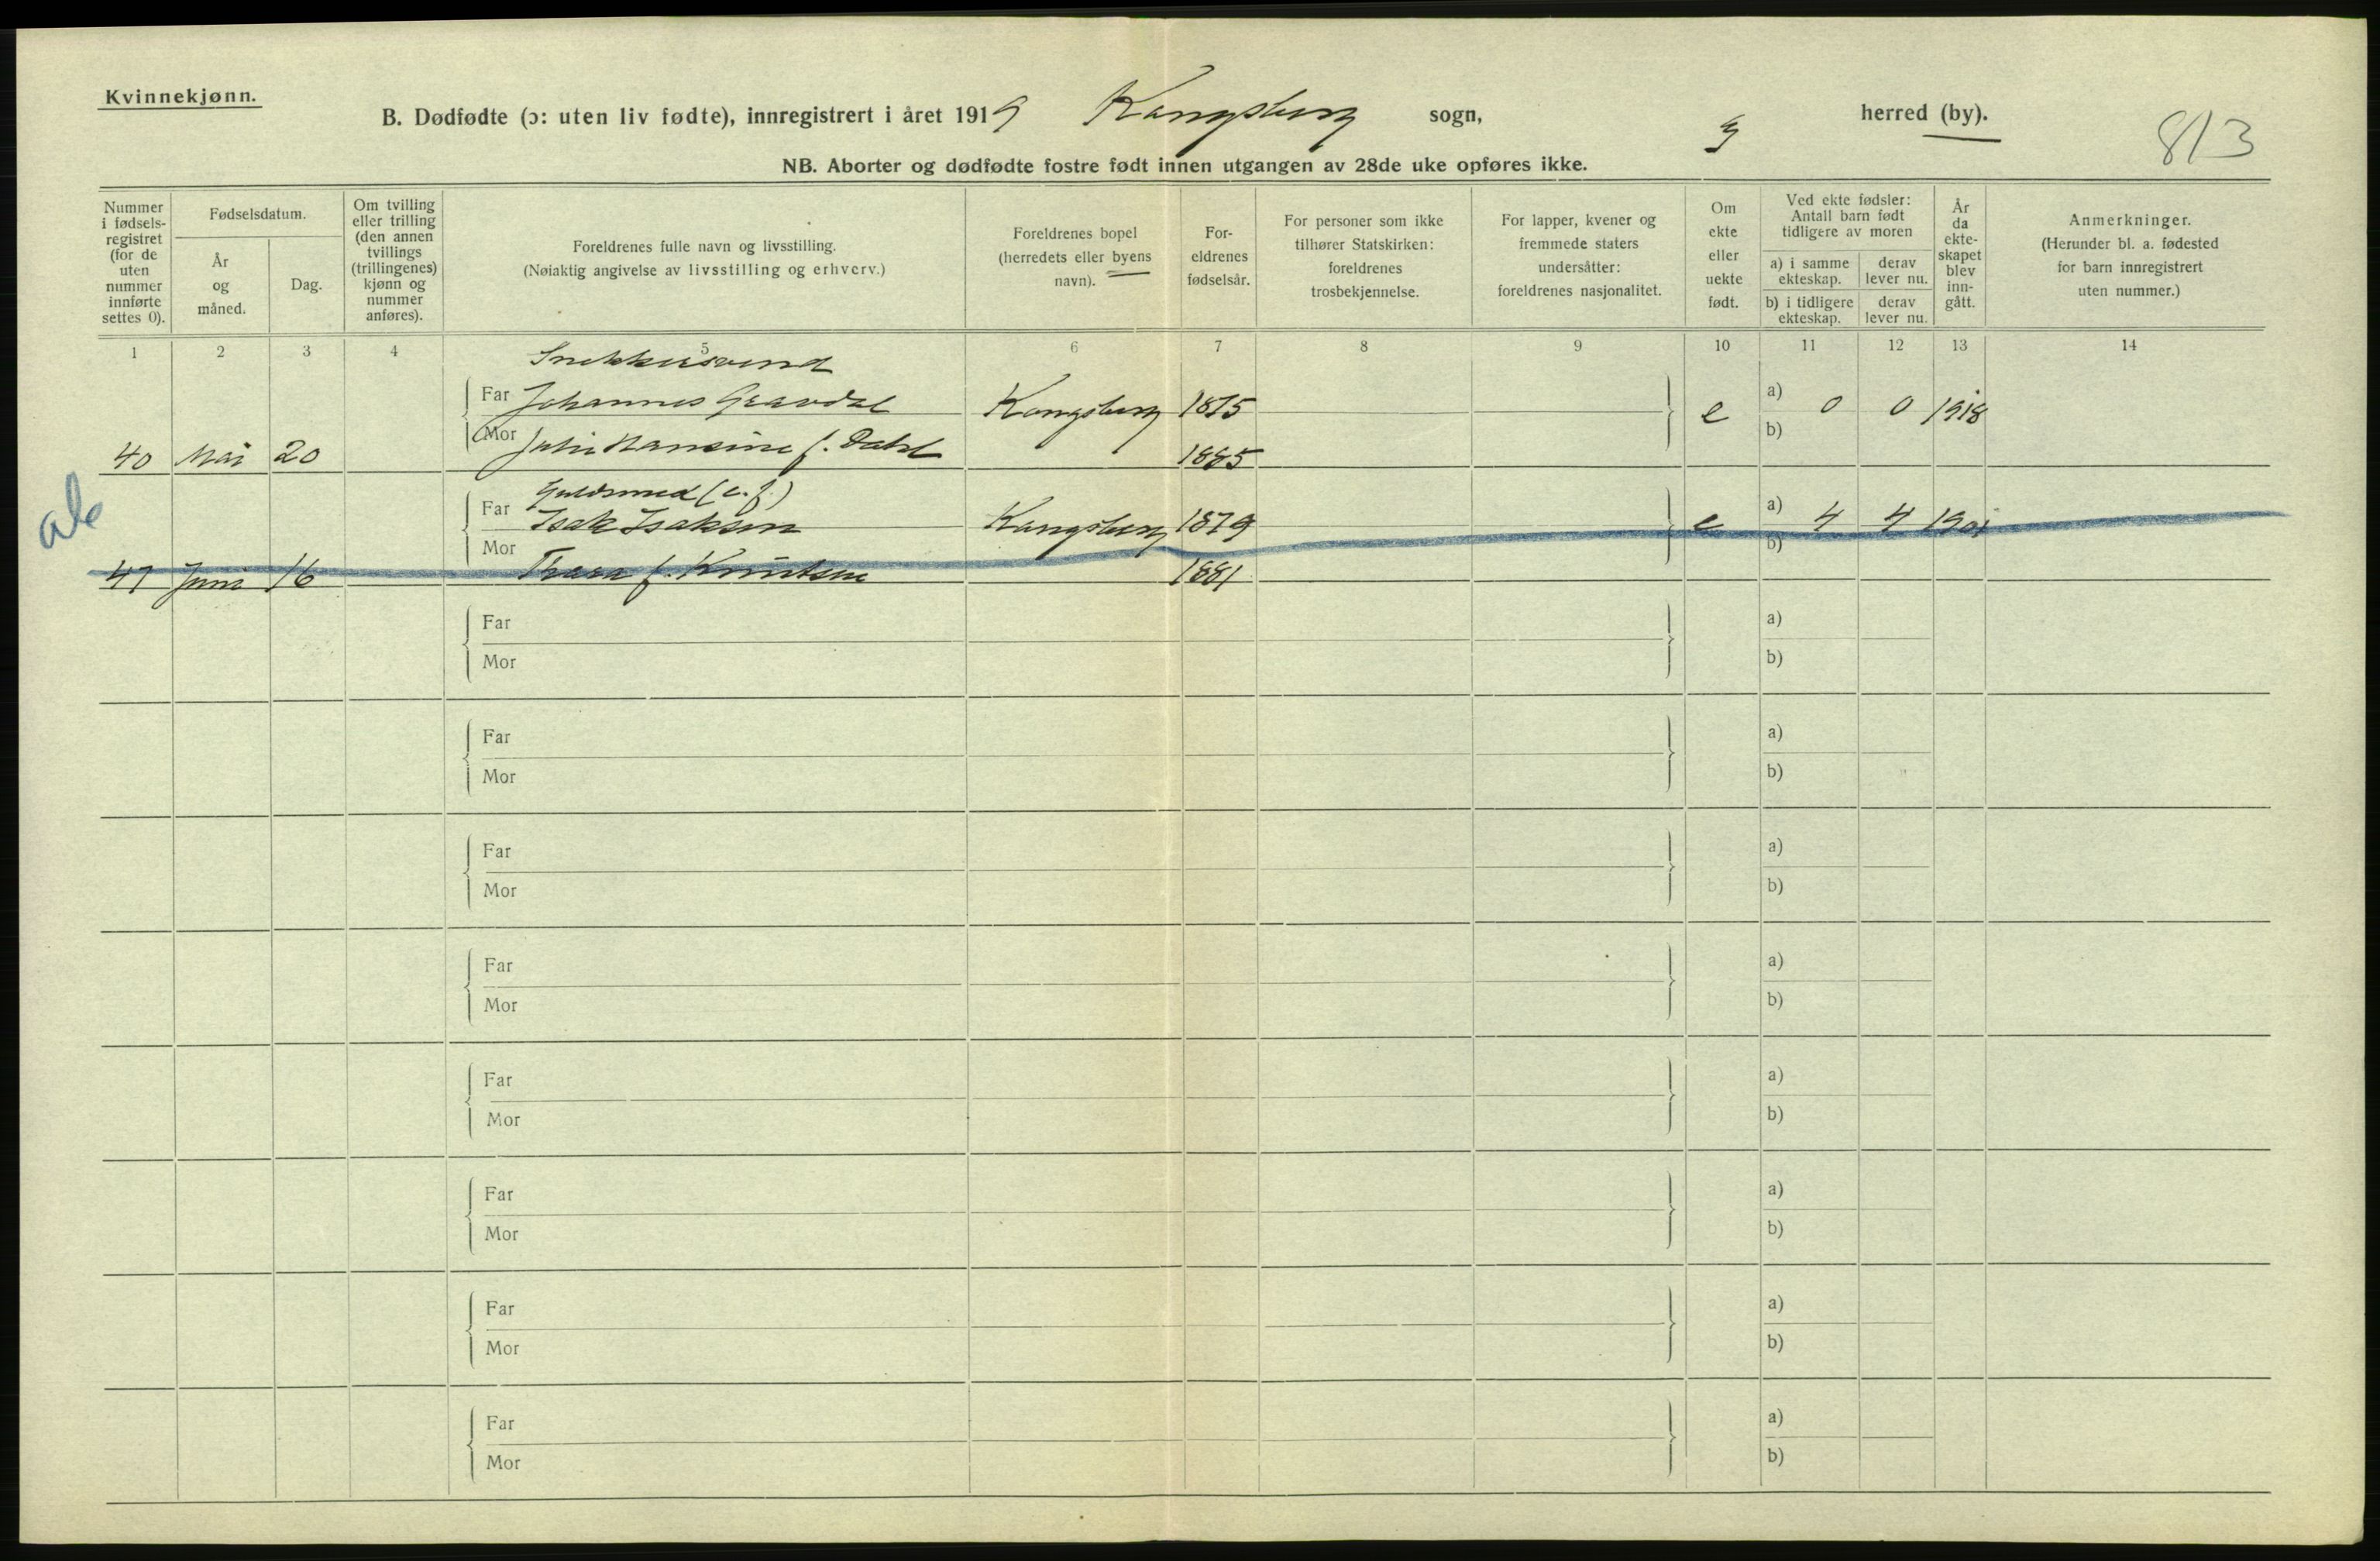 Kvinnekjønn.
B. Dødfødte (ɔ: uten liv fødte), innregistrert i året 1919 Kongsberg sogn, herred (by).
813
NB. Aborter og dødfødte fostre født innen utgangen av 28de uke opføres ikke.
Nummer i fødsels-registret (for de uten nummer innførte settes 0).
Fødselsdatum.
År og måned.
Dag.
Om tvilling eller trilling (den annen tvillings (trillingenes) kjønn og nummer anføres).
Foreldrenes fulle navn og livsstilling.
(Nøiaktig angivelse av livsstilling og erhverv.)
Foreldrenes bopel (herredets eller byens navn).
For-eldrenes fødselsår.
For personer som ikke tilhører Statskirken: foreldrenes trosbekjennelse.
For lapper, kvener og fremmede staters undersåtter: foreldrenes nasjonalitet.
Om ekte eller uekte født.
Ved ekte fødsler: Antall barn født tidligere av moren
a) i samme ekteskap.
derav lever nu.
b) i tidligere ekteskap.
derav lever nu.
År da ekte-skapet blev inn-gått.
Anmerkninger.
(Herunder bl. a. fødested for barn innregistrert uten nummer.)
1 2 3 4 5 6 7 8 9 10 11 12 13 14
Snekkersvend
Far Johannes Gravdal Kongsberg 1875 e a) 0 0 1918
Mor Julie Hansine f. Dahl b)
40 Mai 20 1885
Guldsmed (e. f.)
Far Isak Isaksen Kongsberg 1879 e a) 4 4 1901
Mor b)
47 Juni 16 Thara f. Knutsen 1881
Far a)
Mor b)
Far a)
Mor b)
Far a)
Mor b)
Far a)
Mor b)
Far a)
Mor b)
Far a)
Mor b)
Far a)
Mor b)
Far a)
Mor b)